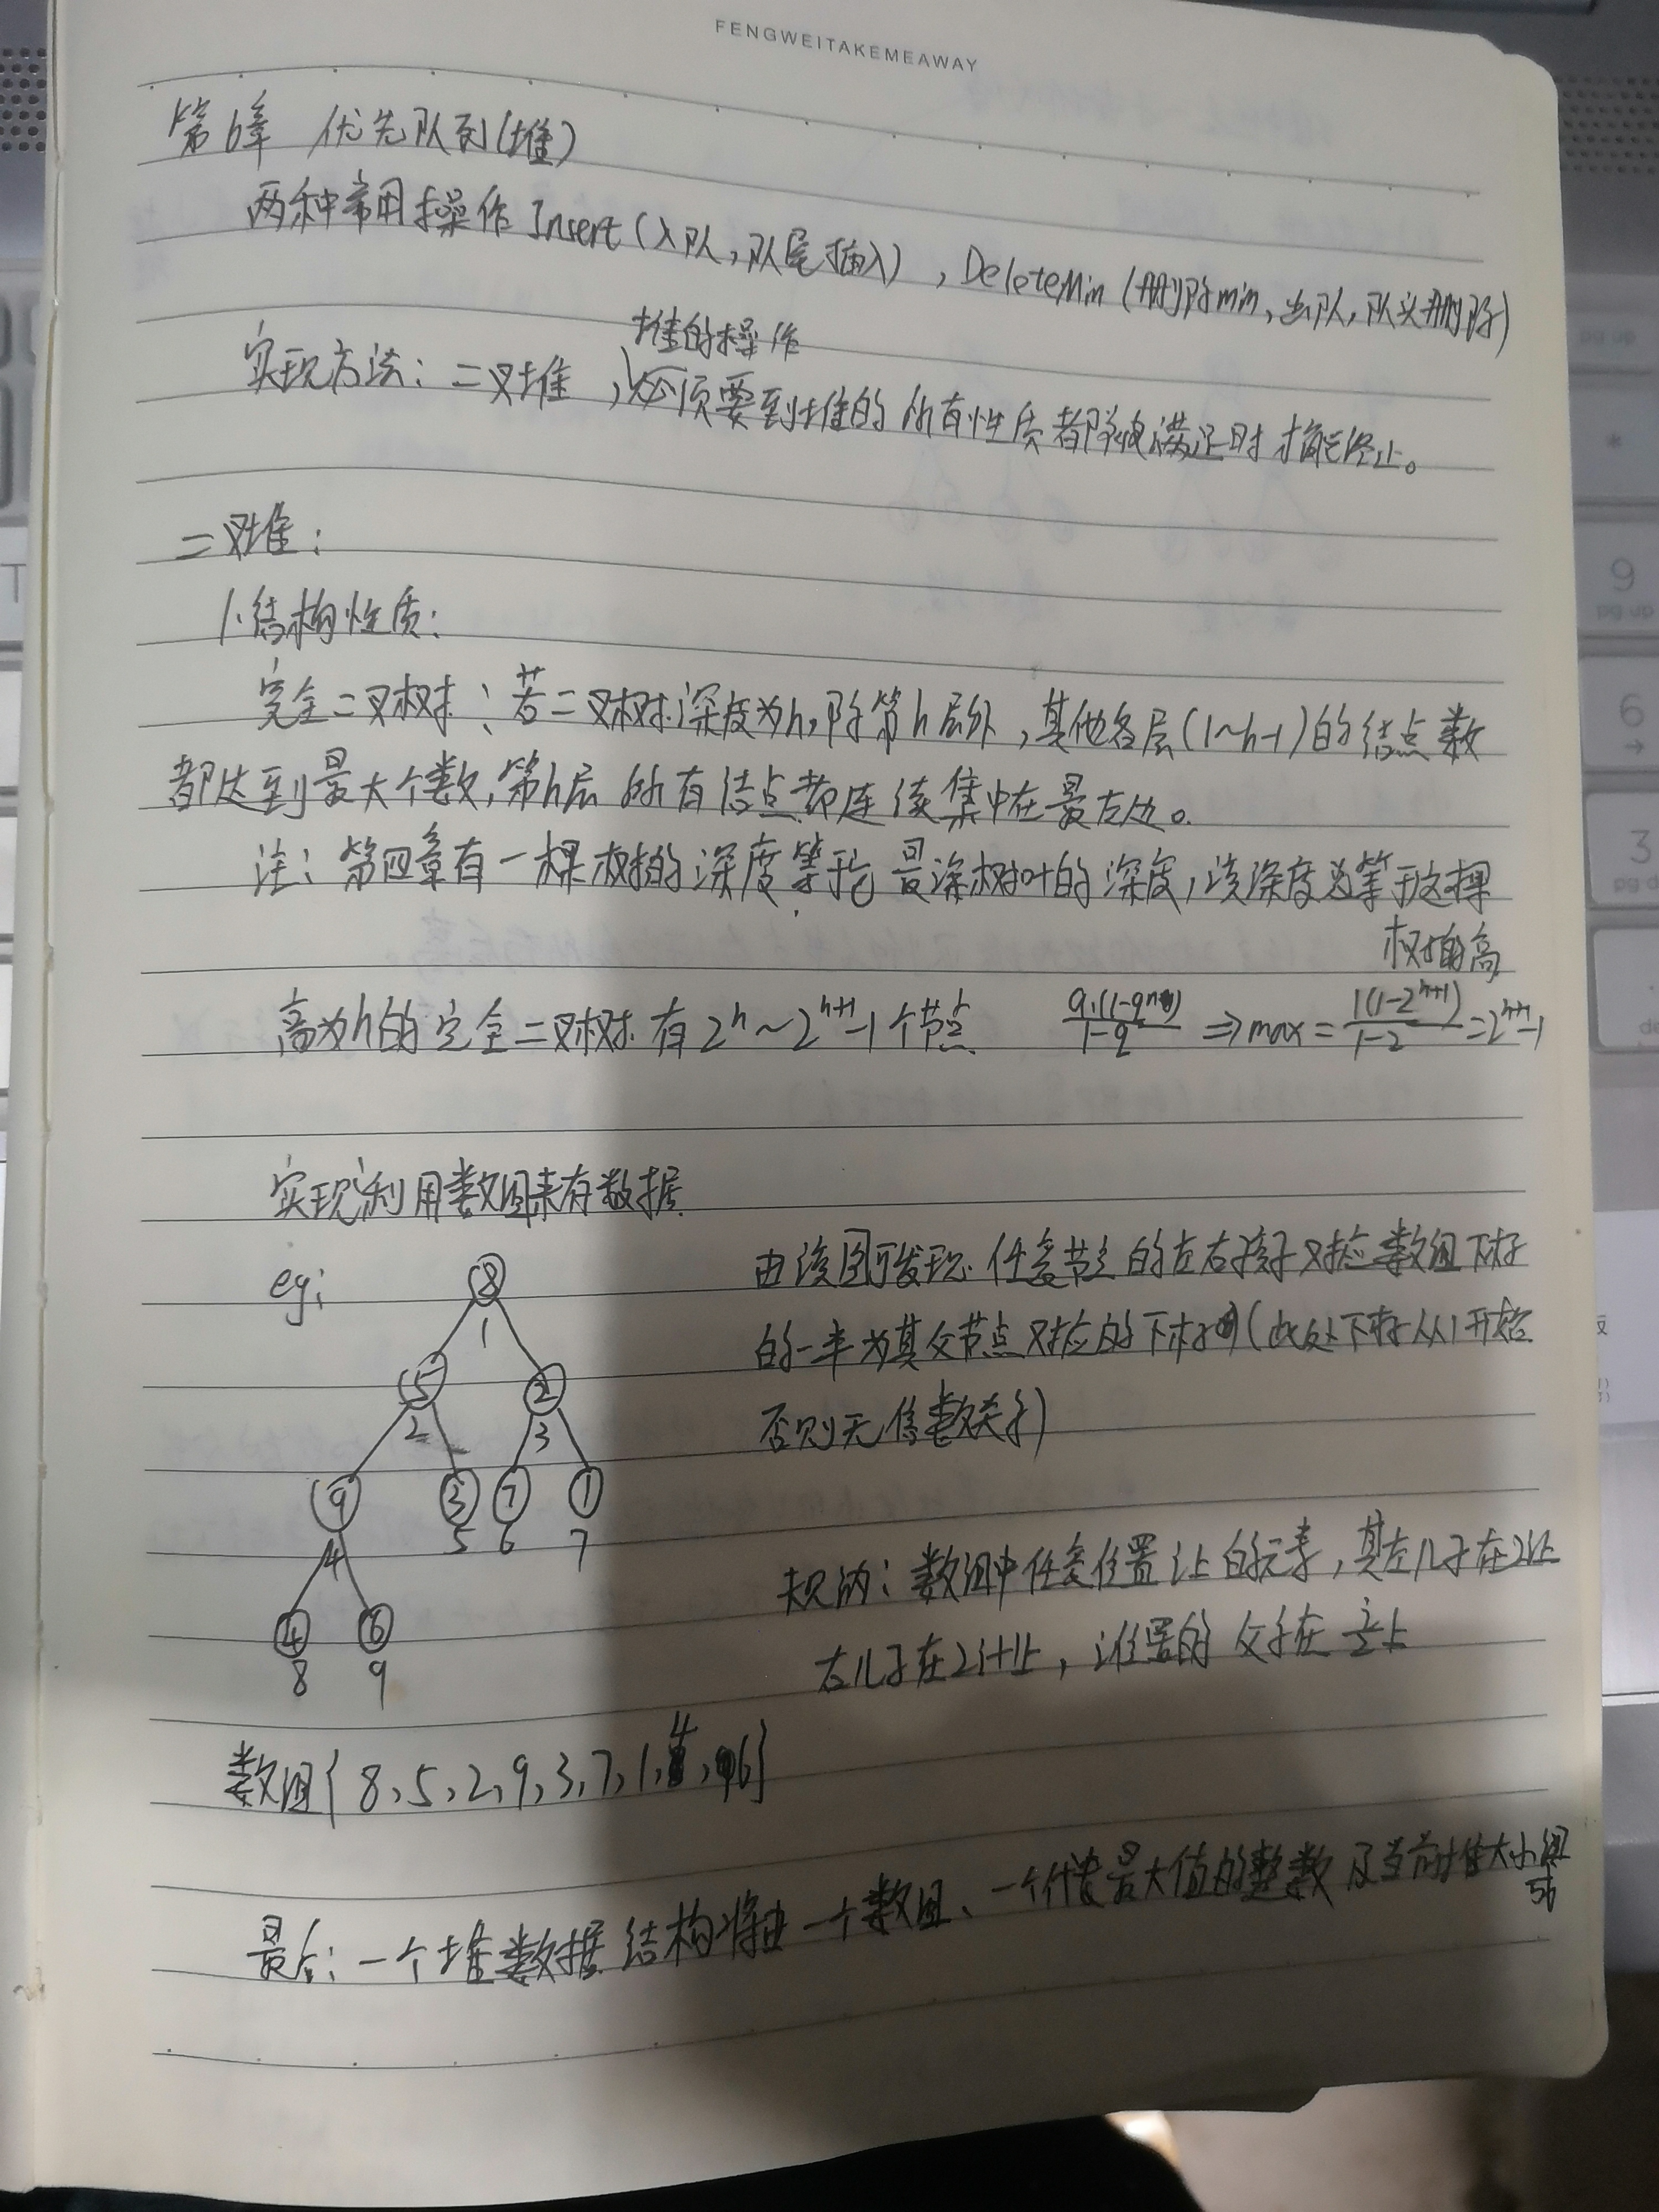 FENGWEITAKEMEAWAY
第6章 优先队列(堆)
两种常用操作 Insert(入队,队尾插入), DeleteMin(删除min,出队,队头删除)
堆的操作
实现方法:二叉堆,必须要到堆的所有性质都被满足时才能终止。
二叉堆:
1.结构性质:
完全二叉树:若二叉树深度为h,除第h层外,其他各层(1~h-1)的结点数
都达到最大个数,第h层所有结点都连续集中在最左边。
注:第四章有一棵树的深度等于它最深树叶的深度,该深度总等于这棵
树的高
高为h的完全二叉树有2^h~2^{h+1}-1个节点 ⇒ max = \frac{1(1-2^{h+1})}{1-2} = 2^{h+1}-1
实现:利用数组来存数据
eg:
8
1
5 2
2 3
9 3 7 1
4 5 6 7
4 6
8 9
由该图可发现 任意节点的左右孩子对应数组下标
的一半为其父节点对应的下标(此处下标从1开始
否则无倍数关系)
规纳:数组中任意位置i上的元素,其左儿子在2i上
右儿子在2i+1上,i位置的父子在\frac{i}{2}上
数组{8,5,2,9,3,7,1,4,6}
最后:一个堆数据结构将由一个数组、一个代表最大值的整数及当前堆大小组
成